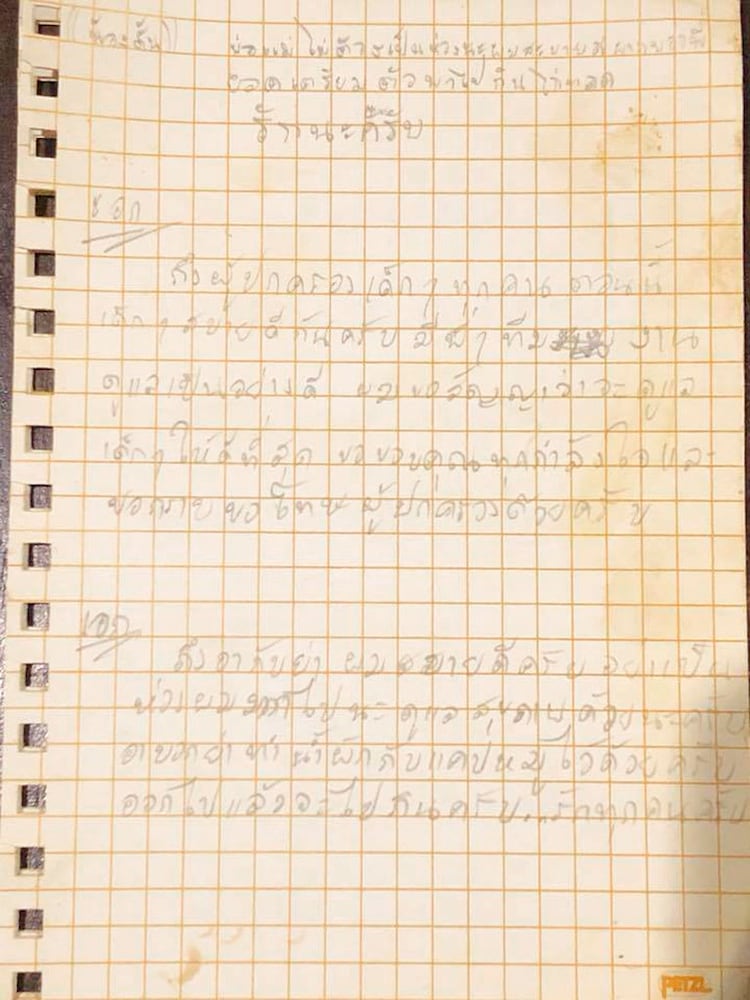 (น้องตั้น) พ่อแม่ ไม่ต้องเป็นห่วงนะ ผมสบายดี
ยอด เตรียมตัวพาไปกินไก่ทอด
ด้วยนะครับ
เอก
ถึงผู้ปกครองเด็กๆ ทุกคน ตอนนี้
เด็กๆ สบายดีกันครับ มีพี่ๆ ทีม งาน
ดูแลเป็นอย่างดี ผมขอสัญญาว่าจะดูแล
เด็กๆ ให้ดีที่สุด ขอขอบคุณทุกกำลังใจ และ
ขอกราบขอโทษผู้ปกครองด้วยครับ
เอก
ถึงอากับย่า ผมสบายดีครับ อย่าเป็น
ห่วงผมมากไปนะ ดูแลสุขภาพด้วยนะครับ
อาบอกย่าทำน้ำผักกับแคปหมูไว้ด้วยครับ
ออกไปแล้วจะไปกินครับ...รักทุกคนครับ
PETZL